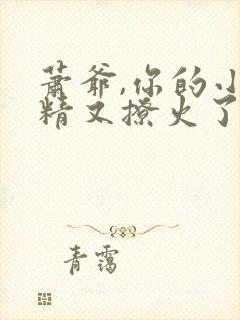 萧爷,你的小
精又撩火了
青霭